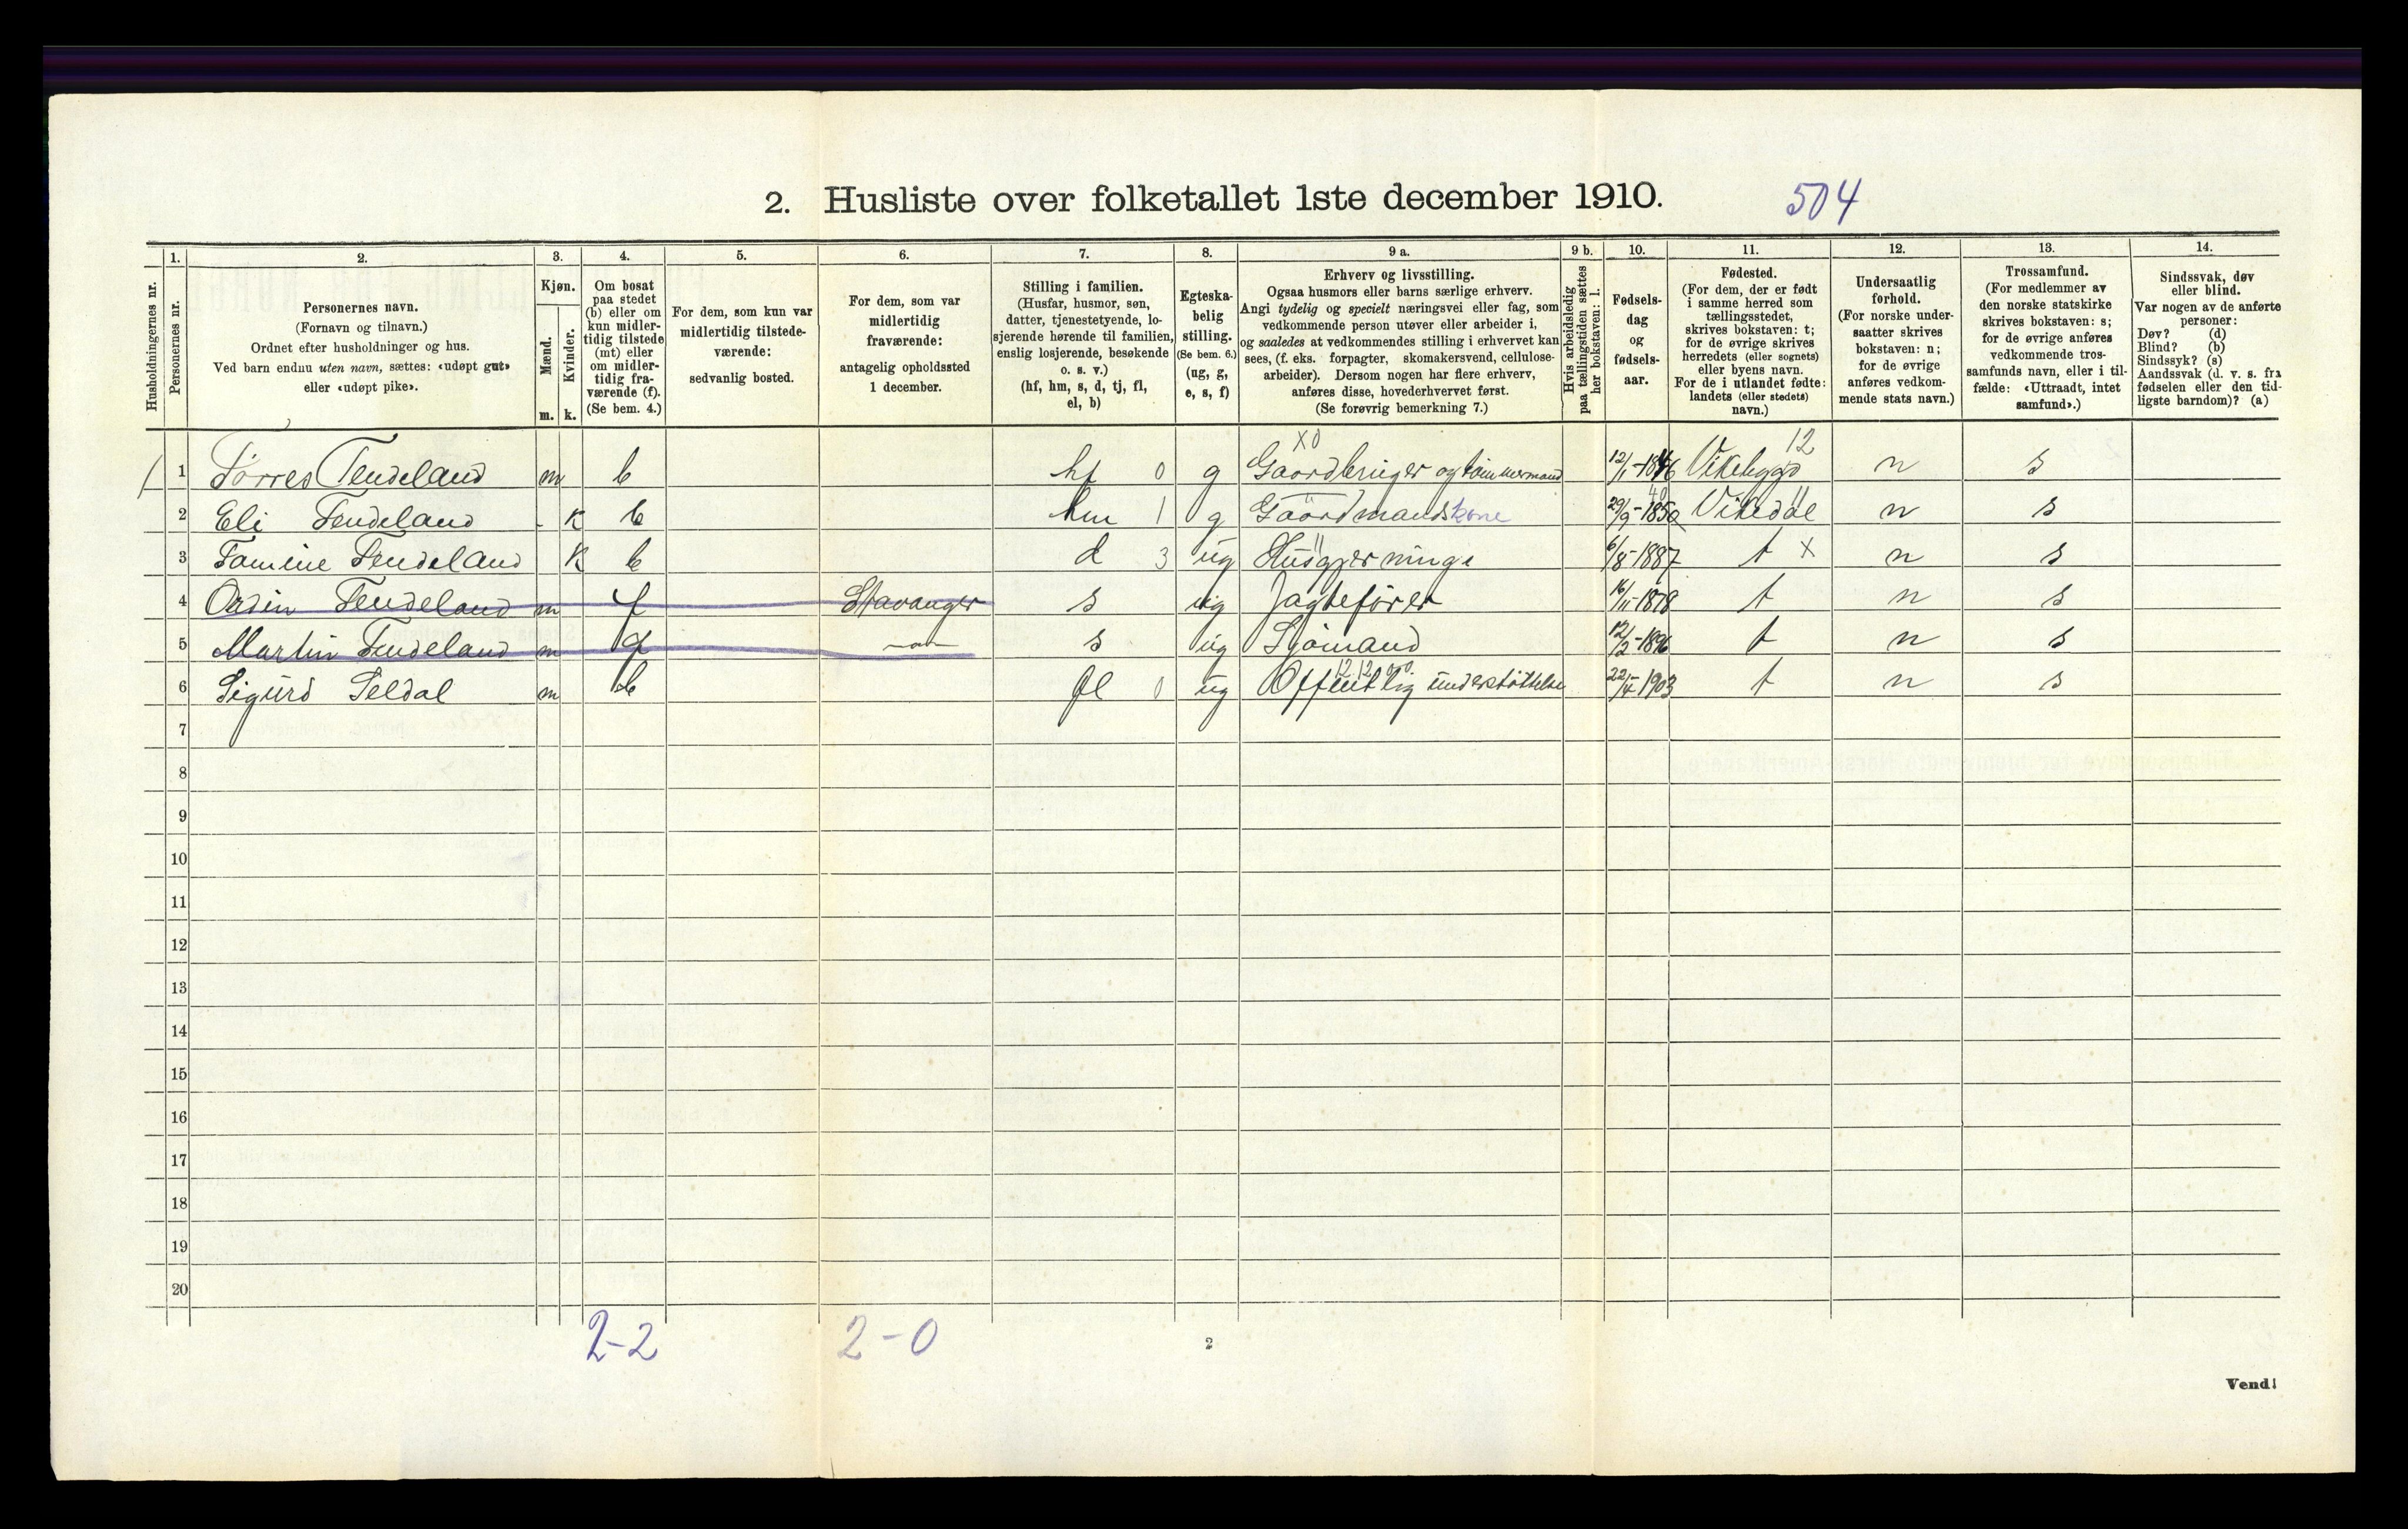 2. Husliste over folketallet 1ste december 1910. 504
Husholdningernes nr.
1. Personernes nr.
2. Personernes navn.
(Fornavn og tilnavn.)
Ordnet efter husholdninger og hus.
Ved barn endnu uten navn, sættes: «udøpt gut»
eller «udøpt pike».
3. Kjøn.
Mænd. m.
Kvinder. k.
4. Om bosat
paa stedet
(b) eller om
kun midler-
tidig tilstede
(mt) eller
om midler-
tidig fra-
værende (f).
(Se bem. 4.)
5. For dem, som kun var
midlertidig tilstede-
værende:
sedvanlig bosted.
6. For dem, som var
midlertidig
fraværende:
antagelig opholdssted
1 december.
7. Stilling i familien.
(Husfar, husmor, søn,
datter, tjenestetyende, lo-
sjerende hørende til familien,
enslig losjerende, besøkende
o. s. v.)
(hf, hm, s, d, tj, fl,
el, b)
8. Egteska-
belig
stilling.
(Se bem. 6.)
(ug, g,
e, s, f)
9 a. Erhverv og livsstilling.
Ogsaa husmors eller barns særlige erhverv.
Angi tydelig og specielt næringsvei eller fag, som
vedkommende person utøver eller arbeider i,
og saaledes at vedkommendes stilling i erhvervet kan
sees, (f. eks. forpagter, skomakersvend, cellulose-
arbeider). Dersom nogen har flere erhverv,
anføres disse, hovederhvervet først.
(Se forøvrig bemerkning 7.)
9 b. Hvis arbeidsledig
paa tællingstiden sættes
her bokstaven: l.
10. Fødsels-
dag
og
fødsels-
aar.
11. Fødested.
(For dem, der er født
i samme herred som
tællingsstedet,
skrives bokstaven: t;
for de øvrige skrives
herredets (eller sognets)
eller byens navn.
For de i utlandet fødte:
landets (eller stedets)
navn.)
12. Undersaatlig
forhold.
(For norske under-
saatter skrives
bokstaven: n;
for de øvrige
anføres vedkom-
mende stats navn.)
13. Trossamfund.
(For medlemmer av
den norske statskirke
skrives bokstaven: s;
for de øvrige anføres
vedkommende tros-
samfunds navn, eller i til-
fælde: «Uttraadt, intet
samfund».)
14. Sindssvak, døv
eller blind.
Var nogen av de anførte
personer:
Døv? (d)
Blind? (b)
Sindssyk? (s)
Aandssvak (d. v. s. fra
fødselen eller den tid-
ligste barndom)? (a)
X0 12
1 Torres Tendeland m b hf 0 g Gaardbruger og tømmermand 12/1-1846 Vikebygd n s
40 11
2 Eli Tendeland - K b hm 1 g Gaardmandskone 29/9-1850 Vikedal n s
3 Tomine Tendeland K b d 3 ug Husgjerninge 6/8-1887 t X n s
4 Ordin Tendeland m f Stavanger s ug Jagtefører 16/11-1878 t n s
5 Martin Tendeland m f -"- s ug Sjømand 12/2-1896 t n s
6 Sigurd Seldal m b fl 0 ug Offentlig understøttelse 22/4-1903 t n s
7
8
9
10
11
12
13
14
15
16
17
18
19
20
2-2 2-0
2
Vend!